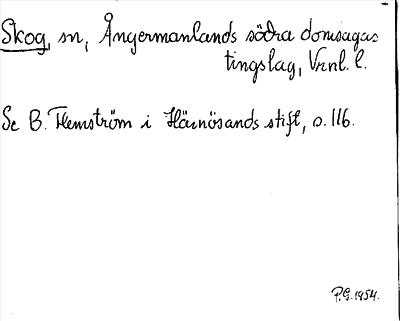 Skog, sn, Ångermanlands södra domsagas
tingslag, Vnnl. l.
Se B. Flemström i Härnösands stift, s. 116.
P.G. 1954.